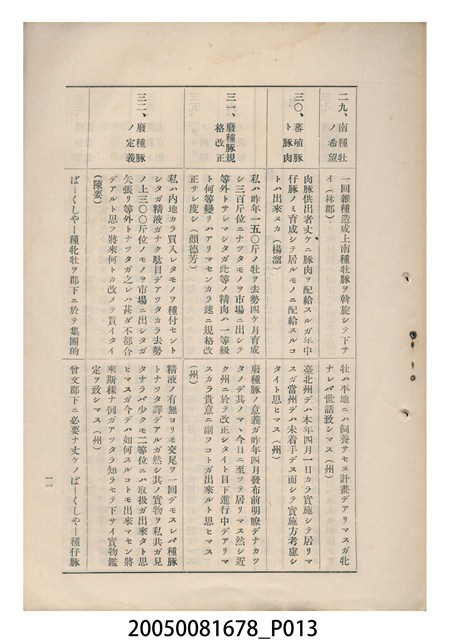 二九、南種牡
ノ希望
一回雜種造成上南種牡豚ヲ斡旋シテ下サ
イ（林郡）
牡ハ不地ニハ飼養サセヌ計畫デアリマスガ牝
ナレバ世話致シマス（州）
三〇、蕃殖豚
ト豚肉
肉豚供出者丈ケニ豚肉ヲ配給スルガ年中
仔豚ノミ育成シテ居ルモノニ配給スルコ
トハ出來ヌカ（楊溜）
臺北州デハ本年四月一日カラ實施シテ居リマ
スガ當州デハ未着手デス而シテ實施方考慮シ
タイト思ヒマス（州）
三一、廢種豚規
格改正
私ハ昨年一五〇斤ノ牡ヲ去勢四ケ月育成
シ三百斤位ニナツタモノヲ市場ニ出シテ
等外トサレマシタガ此等ノ精肉ハ一等級
ト何等變リハアリマセンカラ速ニ規格改
正サレ度シ（顏德芳）
廢種豚ノ意義ガ昨年四月發布前明瞭デナカツ
タノデ其ノママ今日ニ至ツテ居リマス然シ近
ク州ニ於テ改正シタイト目下進行中デアリマ
スカラ貴意ニ副フコトガ出來ルト思ヒマス
（州）
三二、廢種豚
ノ定義
私ハ內地カラ買入レタモノヲ種付セント
シタガ精液ガナク駄目デアツタカラ去勢
ノ上三〇〇斤位ノモノヲ市場ニ出シタガ
矢張リ等外トナツタガ之レハ甚ダ不都合
デアルト思フ將來何トカ改メテ貰イタイ
（陳要）
精液ノ有無ヨリモ交尾ヲ一回デモスレバ種豚
トナツタ譯デアルガ然シ其ノ實物ヲ私共ガ見
タナラバ少クモ二等位ニハ取扱ガ出來タト思
ヒマスガ今デハ如何スルコトモ出來マセン將
來斯樣ナ例ガアツタラ知ラセテ下サイ實物鑑
定ヲ致シマス（州）
ばーくしやー種牝牡ヲ郡下ニ於テ集團的
曾文郡下ニ必要ナ丈ケノばーくしやー種仔豚
一一
20050081678_P013